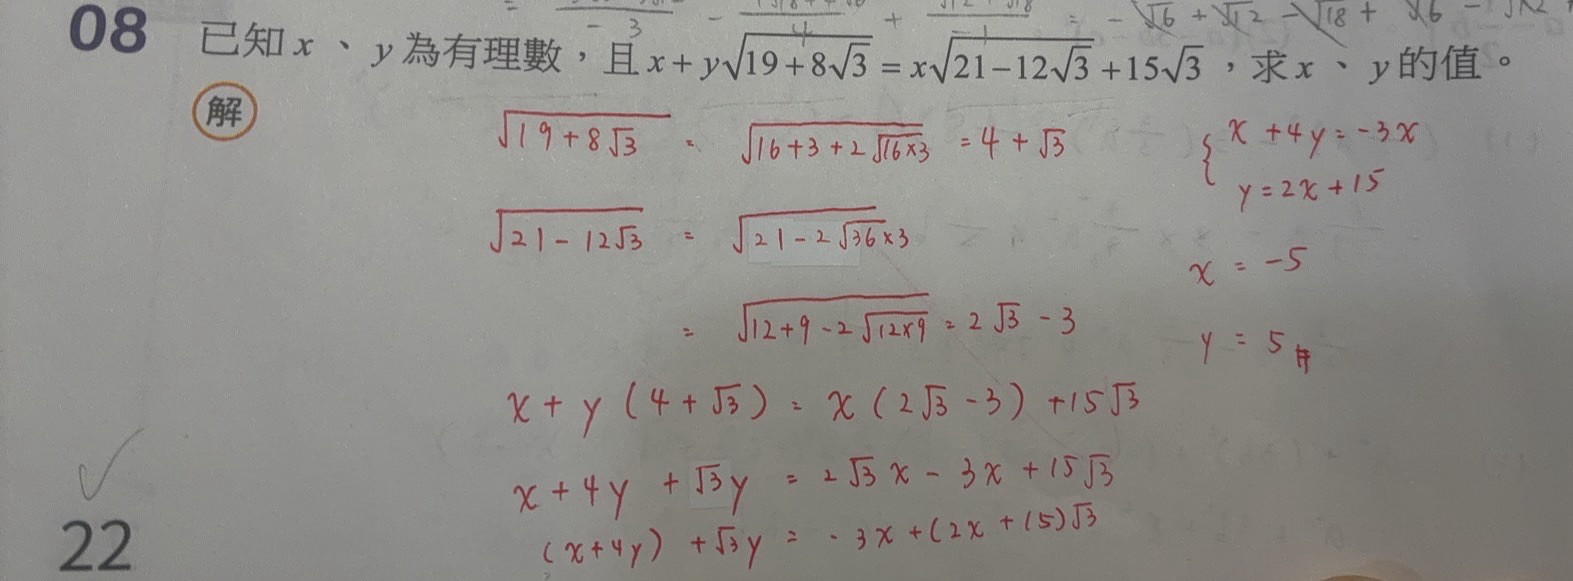 08 已知 x、y 為有理數，且 x + y√(19+8√3) = x√(21−12√3) + 15√3，求 x、y 的值。
解
√(19+8√3) = √(16+3+2√(16×3)) = 4+√3
√(21−12√3) = √(21−2√36×3)
= √(12+9−2√(12×9)) = 2√3 − 3
x + y(4+√3) = x(2√3−3) + 15√3
x + 4y + √3y = 2√3x − 3x + 15√3
(x+4y) + √3y = -3x + (2x+15)√3
{ x + 4y = -3x
y = 2x + 15
x = -5
y = 5 #
22